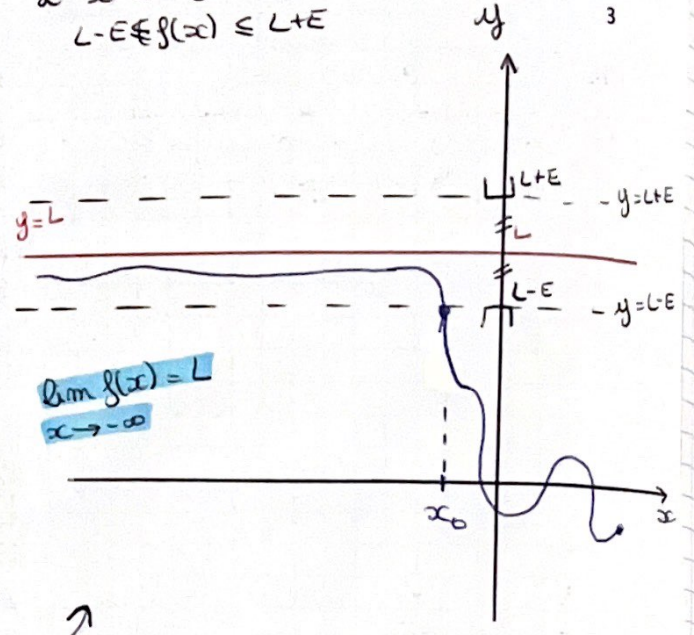 L-E≤f(x) ≤ L+E
3
y
L+E
y=L+E
y=L
L
L-E
y=L-E
lim f(x) = L
x→-∞
x₀
x